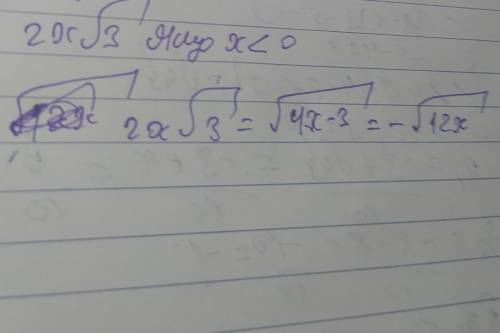 2x√3 Якщо x < 0
2x√3 = √4x-3 = -√12x